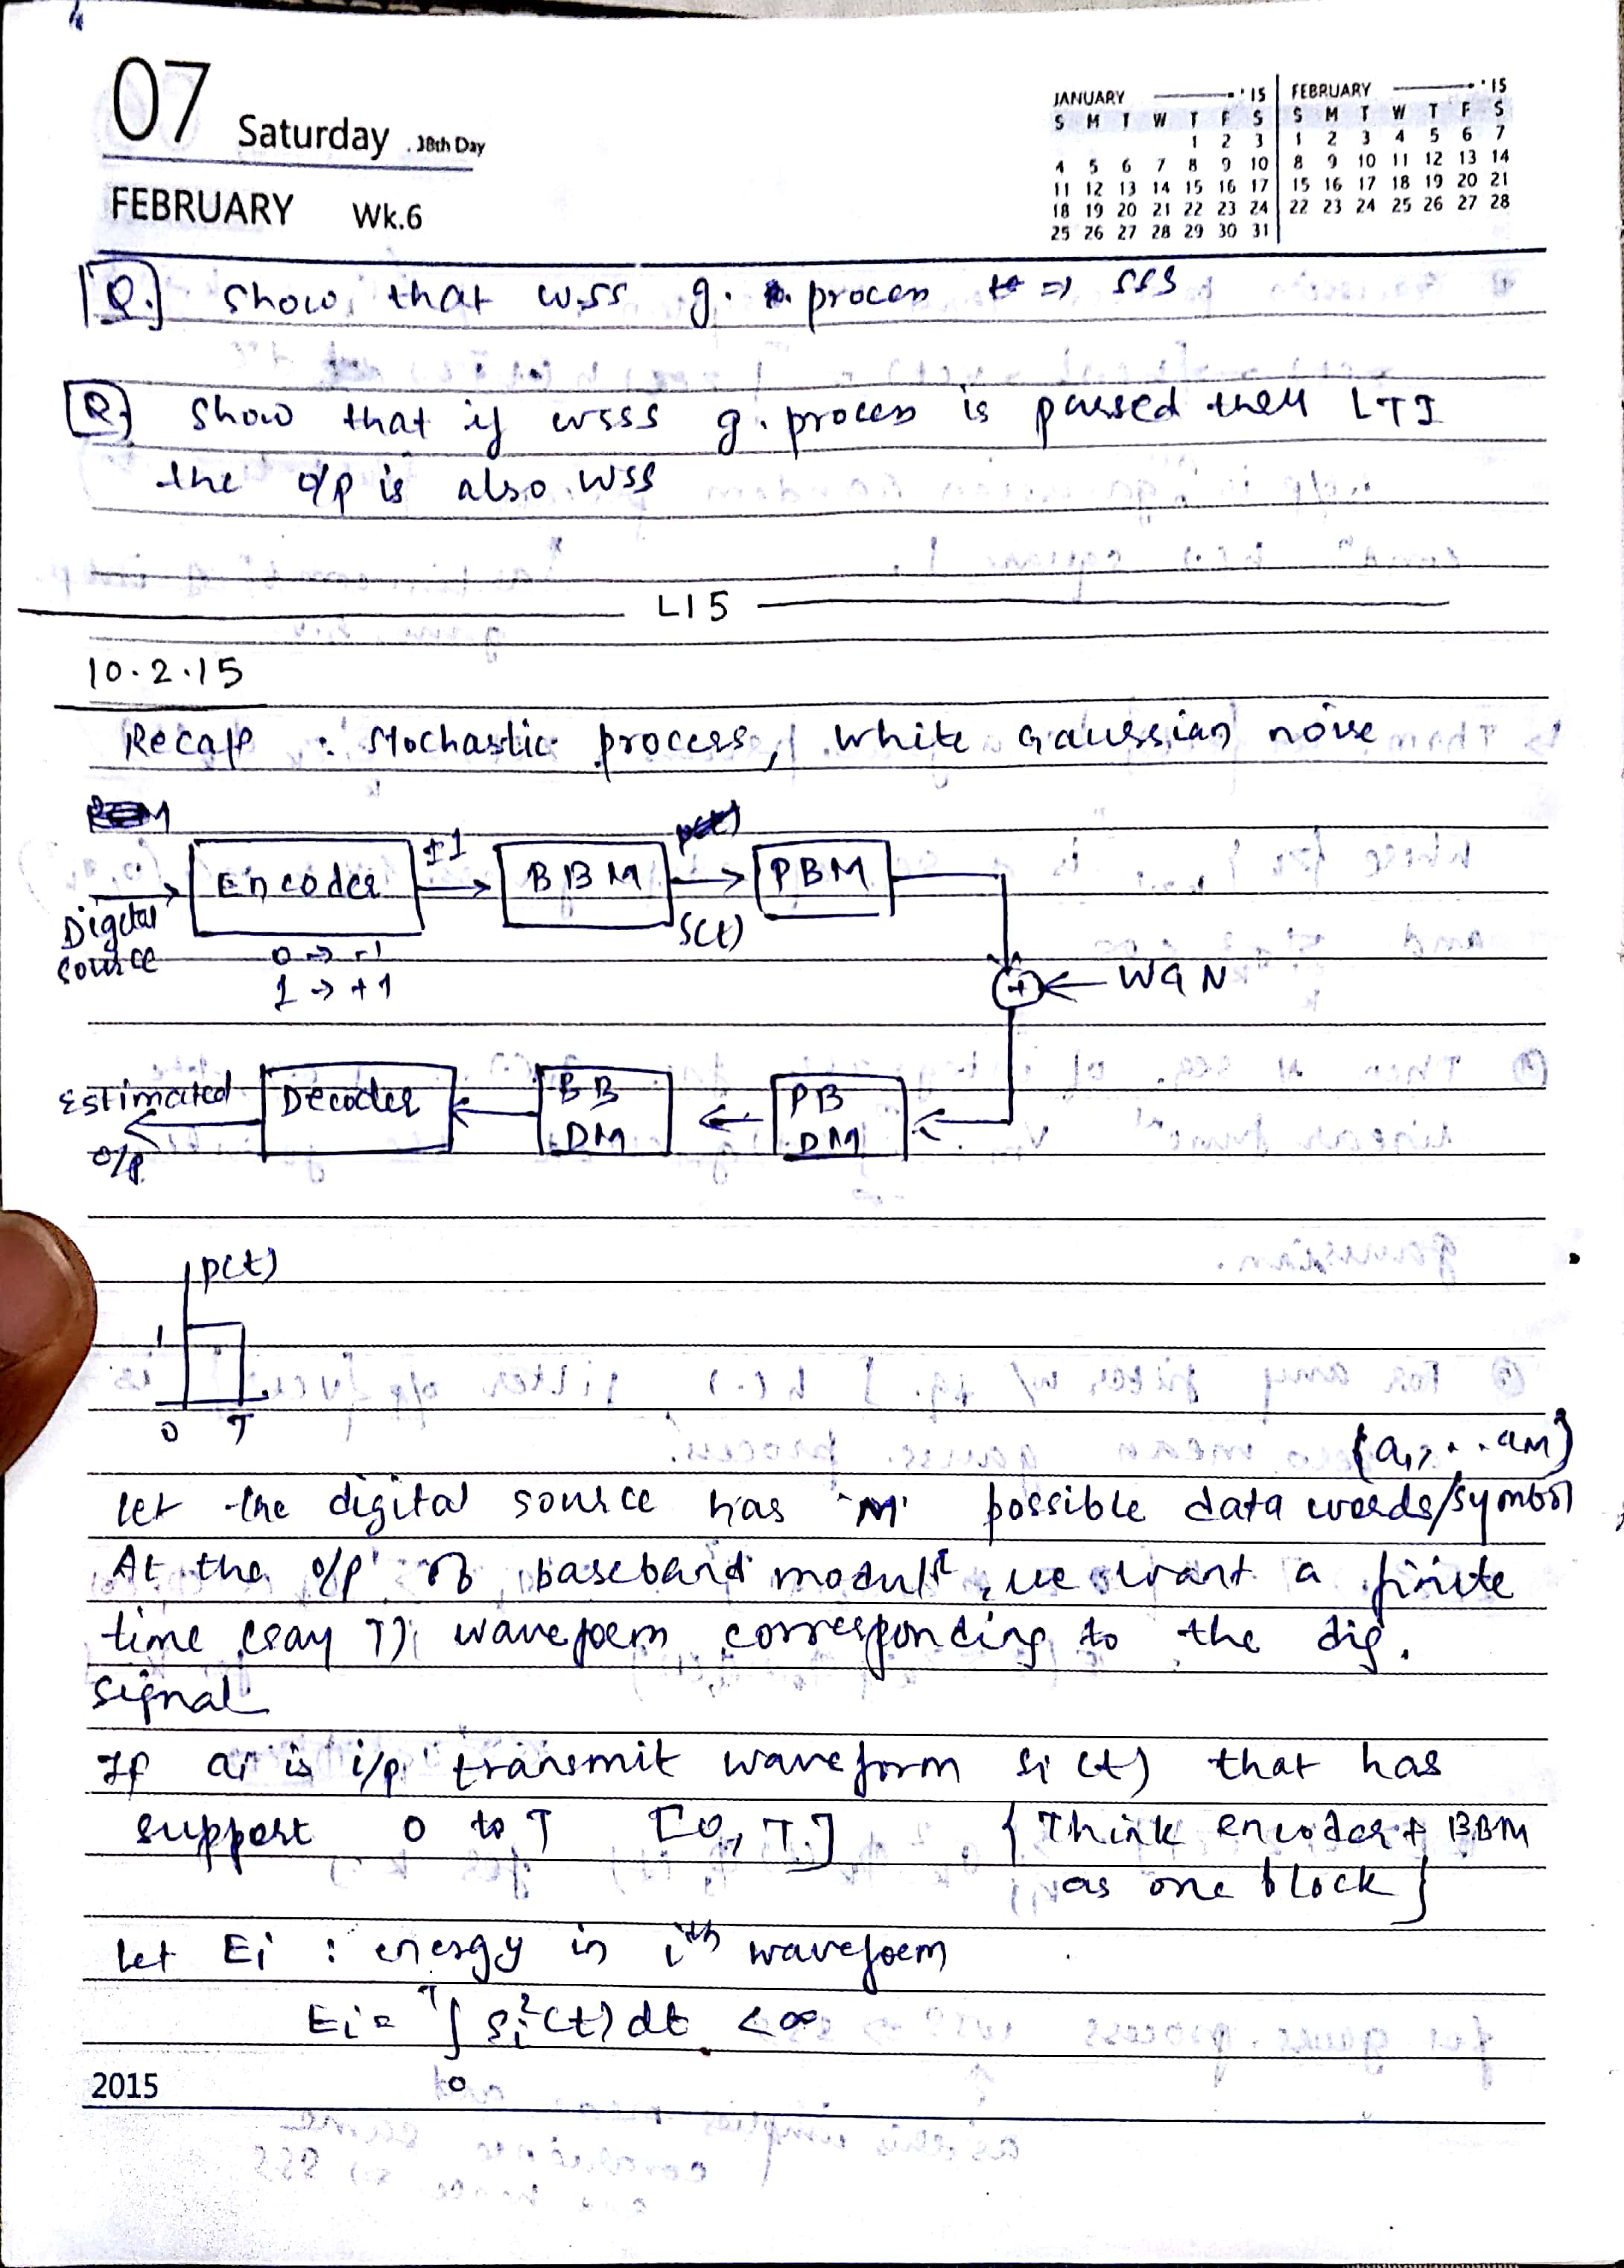 07 Saturday . 38th Day
FEBRUARY Wk.6
JANUARY '15
S M T W T F S
1 2 3
4 5 6 7 8 9 10
11 12 13 14 15 16 17
18 19 20 21 22 23 24
25 26 27 28 29 30 31
FEBRUARY '15
S M T W T F S
1 2 3 4 5 6 7
8 9 10 11 12 13 14
15 16 17 18 19 20 21
22 23 24 25 26 27 28
Q. Show that wss g. process => SSS
Q. Show that if wsss g. process is passed then LTI
the o/p is also WSS
L15
10.2.15
Recap : Stochastic process, White Gaussian noise
Digital source
Encoder
0 → -1
1 → +1
±1
BBM
S(t)
PBM
+
WGN
PB DM
BB DM
Decoder
Estimated o/p
p(t)
1
0 T
{a1, . . aM}
let the digital source has 'M' possible data words/symbol
At the o/p of baseband modult, we want a finite
time (say T) waveform corresponding to the dig.
signal
If ai is i/p transmit waveform si(t) that has
support 0 to T [0, T] { Think encoder + BBM
as one block }
let Ei : energy in ith waveform
Ei = T∫0 si²(t) dt < ∞
2015